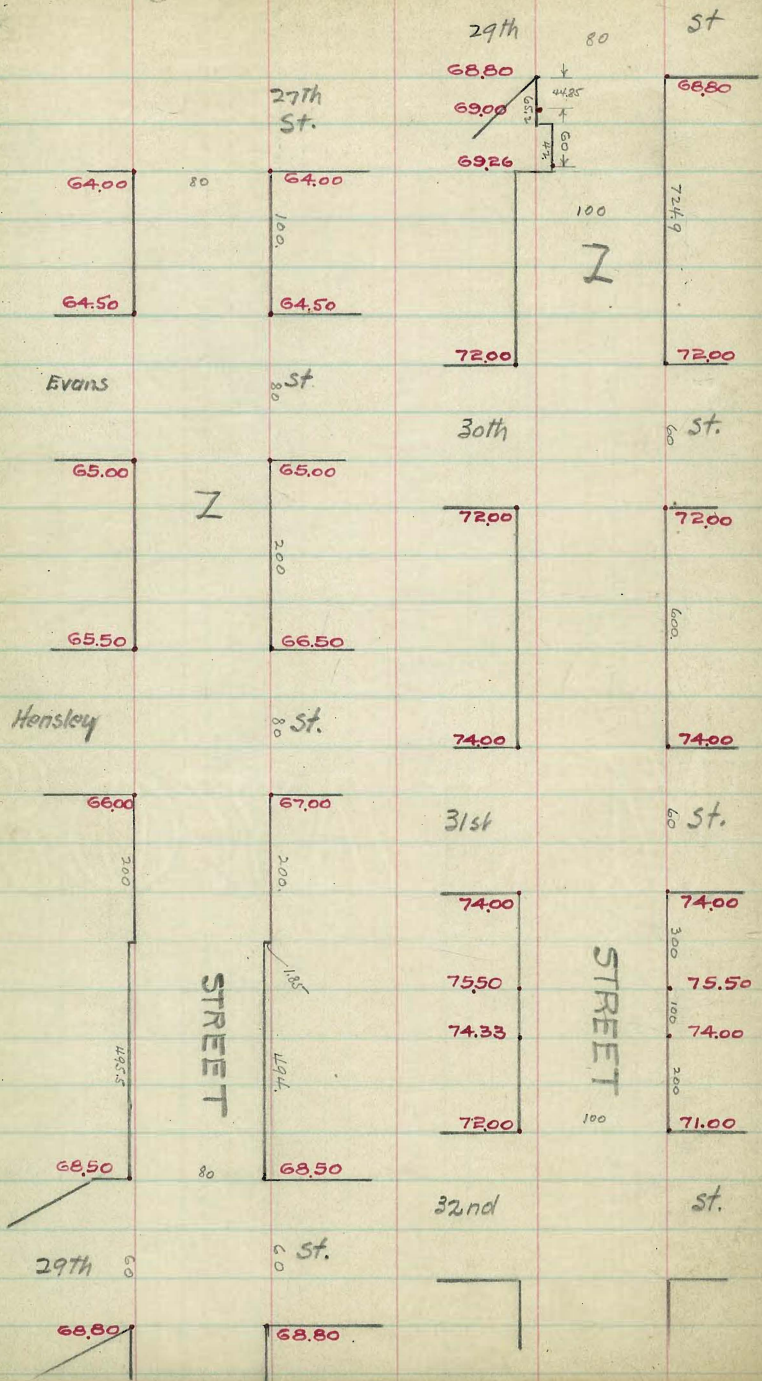 27th
St.
64.00 80 64.00
100.
64.50 64.50
Evans 80 St.
65.00 65.00
Z
200
65.50 66.50
Hensley 80 St.
66.00 67.00
200 200.
1.85
STREET
495.5 494.
68.50 80 68.50
29th 60 60 St.
68.80 68.80
29th 80 St
68.80 68.80
44.85
69.00 65.2
60
69.26 42.
100 724.9
Z
72.00 72.00
30th 60 St.
72.00 72.00
600.
74.00 74.00
31st 60 St.
74.00 74.00
300
75.50 75.50
STREET
100
74.33 74.00
200
72.00 100 71.00
32nd St.